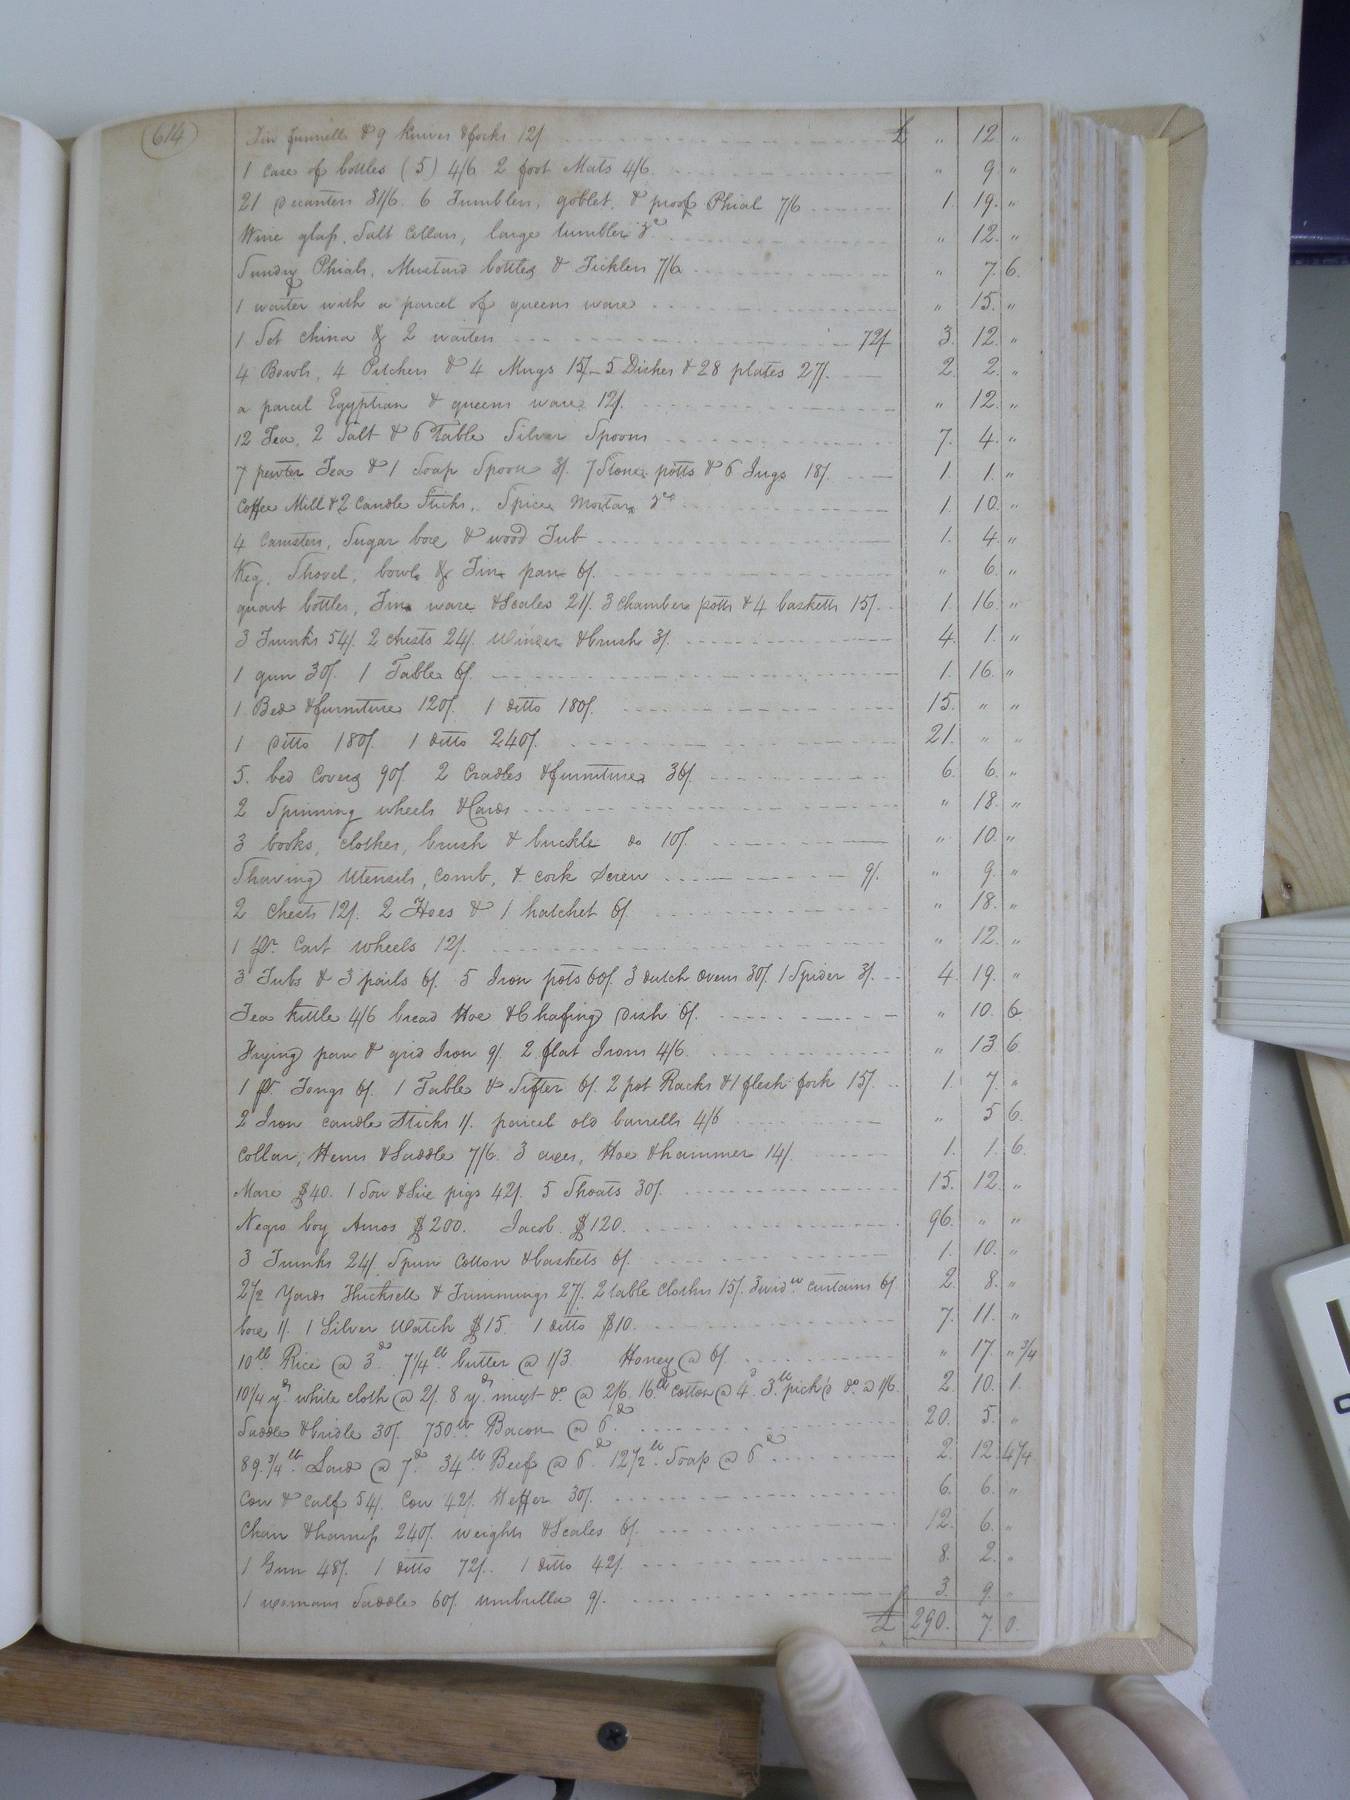 614
Tin funnells & 9 knives & forks 12/. £ " 12. "
1 case of bottles (5) 4/6 2 foot Mats 4/6. " 9. "
21 Decanters 31/6. 6 Tumblers, goblet, & proof Phial 7/6 1. 19. "
Wine glass, Salt Cellars, large tumbler &c " 12. "
Sundry Phials, Mustard bottles & Ticklers 7/6 " 7. 6.
1 waiter with a parcel of queens ware " 15. "
1 Set China & 2 waiters 72/. 3. 12. "
4 Bowls, 4 Pitchers & 4 Mugs 15/. 5 Dishes & 28 plates 27/. 2. 2. "
a parcel Egyptian & queens ware 12/. " 12. "
12 Tea, 2 Salt & 6 Table Silver Spoons 7. 4. "
7 pewter Tea & 1 Soap Spoon 3/. 7 Stone potts & 6 Jugs 18/. 1. 1. "
Coffee Mill & 2 Candle Sticks, Spice Mortar &c 1. 10. "
4 Canisters, Sugar boxe & wood Tub 1. 4. "
Keg, Shovel, bowl & Tin pan 6/. " 6. "
quart bottles, Tin ware & Scales 21/. 3 Chamber potts & 4 basketts 15/. 1. 16. "
3 Trunks 54/. 2 Chests 24/. & brush 3/. 4. 1. "
1 gun 30/. 1 Table 6/. 1. 16. "
1 Bed & furniture 120/. 1 ditto 180/. 15. " "
1 Ditto 180/. 1 ditto 240/. 21. " "
5. bed Covers 90/. 2 Cradles & furniture 36/. 6. 6. "
2 Spinning wheels & Cards " 18. "
3 books, clothes, brush & buckle do 10/. " 10. "
Shaving Utensils, Comb, & cork Screw 9/. " 9. "
2 Chests 12/. 2 Hoes & 1 hatchet 6/. " 18. "
1 pr. Cart wheels 12/. " 12. "
3 Tubs & 3 pails 6/. 5 Iron pots 60/. 3 dutch ovens 30/. 1 Spider 3/. 4. 19. "
Tea kittle 4/6 bread Hoe & Chafing Dish 6/. " 10. 6
Frying pan & grid Iron 9/. 2 flat Irons 4/6. " 13 6
1 pr. Tongs 6/. 1 Table & Sifter 6/. 2 pot Racks & 1 flesh fork 15/. 1. 7. "
2 Iron candle Sticks 1/. parcel old barrells 4/6 " 5 6.
Collar, Hems & Saddle 7/6. 3 axes, Hoe & hammer 14/. 1. 1. 6.
Mare $40. 1 Sow & Six pigs 42/. 5 Shoats 30/. 15. 12. "
Negro boy Amos $200. Jacob $120. 96. " "
3 Trunks 24/. Spun Cotton & baskets 6/. 1. 10. "
2 1/2 Yards Thicksett & Trimmings 27/. 2 table Cloths 15/. 3 windw. curtains 6/. 2. 8. "
boxe 1/. 1 Silver Watch $15. 1 ditto $10. 7. 11. "
10lb. Rice @ 3d. 7 1/4lb butter @ 1/3. Honey @ 6/. " 17. " 3/4
10 1/4 yds. white cloth @ 2/. 8 yds. mixt do @ 2/6. 16lb cotton @ 4d. 3.lb pick'd do. @ 1/6. 2. 10. 1.
Saddle & bridle 30/. 750.lb Bacon @ 6d. 20. 5. "
89. 3/4.lb. Lard @ 7d. 34lb Beef @ 6d. 12 1/2.lb Soap @ 6d. 2. 12. 4 1/4
Cow & Calf 54/. Cow 42/. Heffer 30/. 6. 6. "
Chair & harness 240/. weights & Scales 6/. 12. 6. "
1 Gun 48/. 1 ditto 72/. 1 ditto 42/. 8. 2. "
1 womans Saddle 60/. umbrella 9/. 3. 9. "
£ 290. 7. 0.